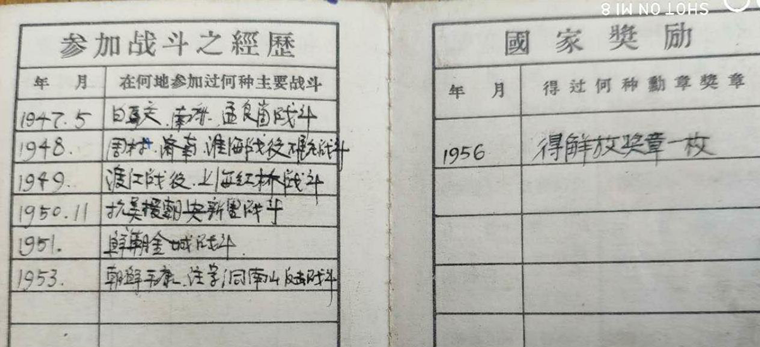 SHOT ON MI 8
参加战斗之經歷
年 月 在何地参加过何种主要战斗
1947.5 白马关、南麻、孟良崮战斗
1948. 周村、济南、淮海战役 战斗
1949. 渡江战役、上海红桥战斗
1950.11 抗美援朝 新里战斗
1951. 鲜朝金城战斗
1953. 朝鲜平康、注字洞南山反击战斗
國家獎励
年 月 得过何种勳章獎章
1956 得解放奖章一枚